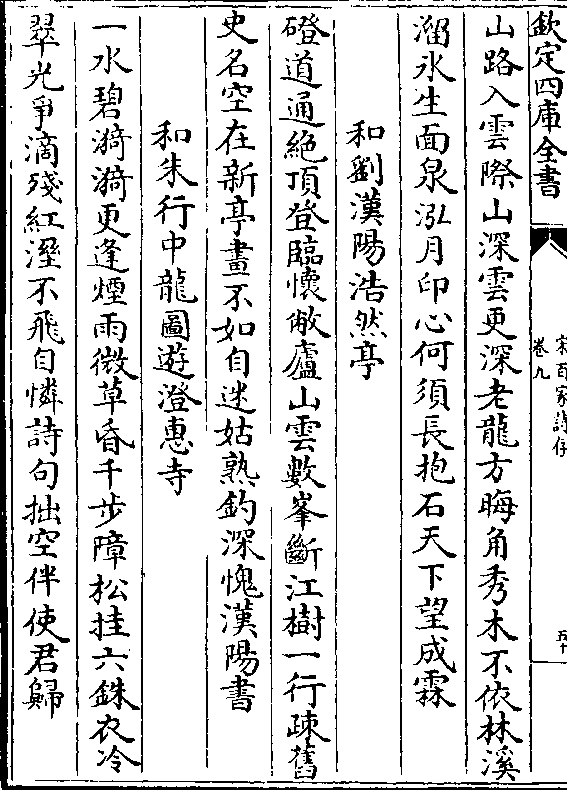 欽定四庫全書
宋百家詩存
卷九
五十
山路入雲際山深雲更深老龍方晦角秀木不依林溪
溜氷生面泉泓月印心何須長抱石天下望成霖
和劉漢陽浩然亭
磴道通絶頂登臨懷敞廬山雲數峯斷江樹一行疎舊
史名空在新亭畫不如自迷姑熟釣深愧漢陽書
和朱行中龍圖遊澄惠寺
一水碧漪漪更逢煙雨微草昏千步障松挂六銖衣冷
翠光爭滴殘紅溼不飛自憐詩句拙空伴使君歸